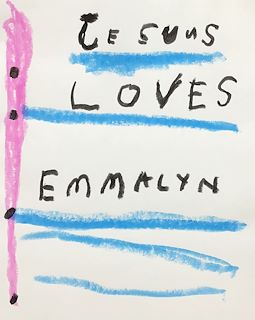 Jesuus
LOVES
EMMALYN